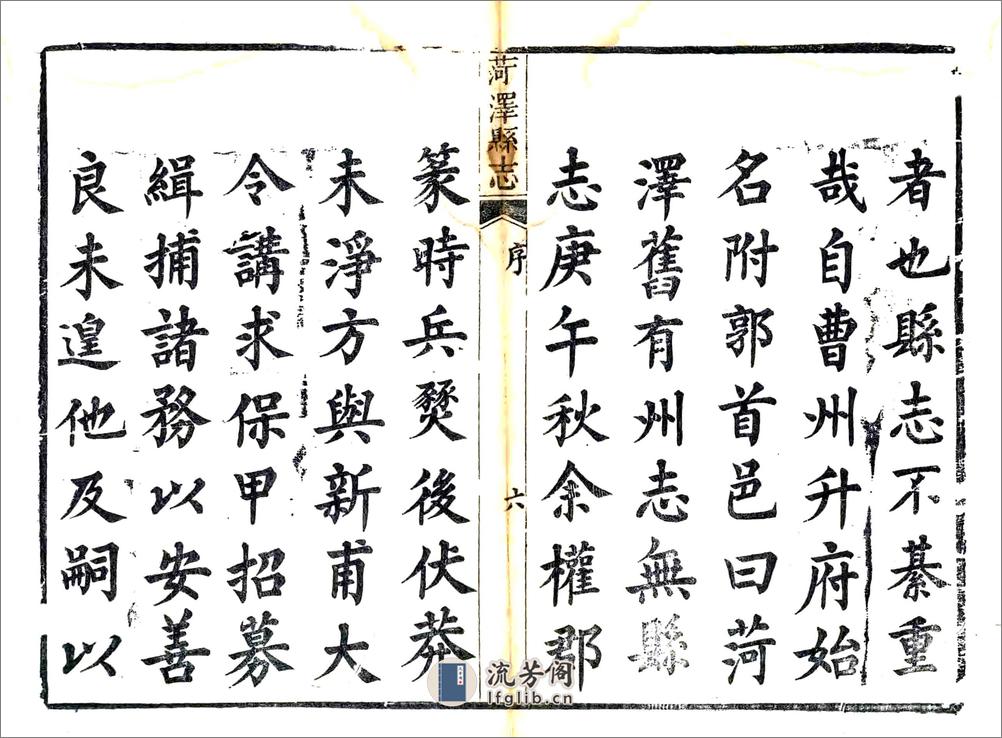 者也縣志不綦重
哉自曹州升府始
名附郭首邑曰菏
澤舊有州志無縣
志庚午秋余權郡
菏澤縣志
序
六
篆時兵燹後伏莽
未淨方與新甫大
令講求保甲招募
緝捕諸務以安善
良未遑他及嗣以
流芳阁
lfglib.cn